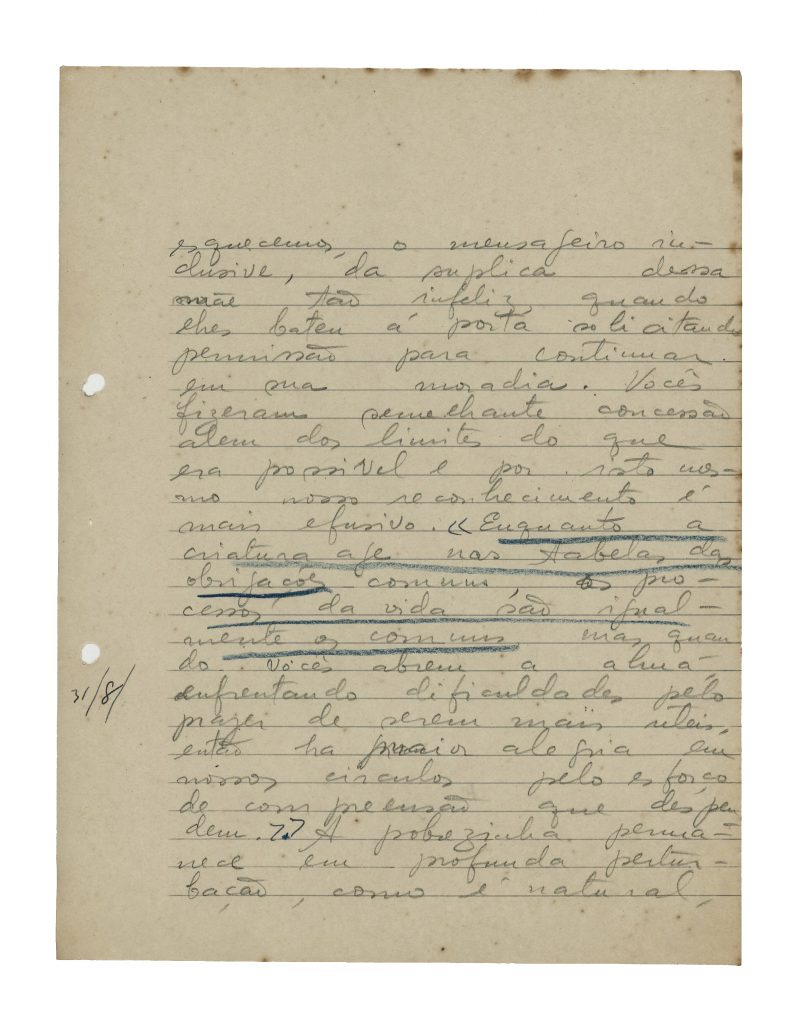 esquecemos, o mensageiro in-
clusive, da suplica dessa
mãe tão infeliz, quando
lhes bateu á porta solicitando
permissão para continuar
em sua moradia. Vocês
fizeram semelhante concessão
alem dos limites do que
era possivel e por isto mes-
mo nosso reconhecimento é
mais efusivo. «Enquanto a
criatura age nas tabelas das
obrigações comuns, os pro-
cessos da vida são igual-
mente os comuns, mas quan
do vocês abrem a alma,
enfrentando dificuldades pelo
31/8/
prazer de serem mais uteis,
então ha maior alegria em
nossos circulos pelo esforço
de compreensão que despen
dem.» A pobrezinha perma-
nece em profunda pertur-
bação, como é natural,